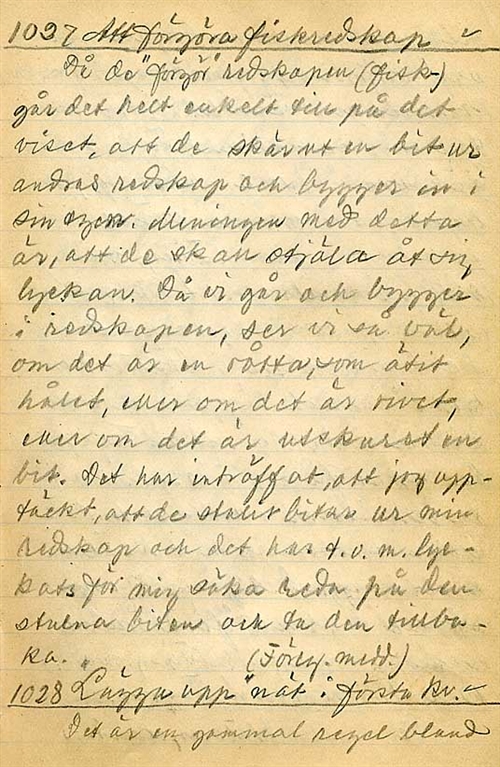 1027 Att förgöra fiskredskap
Då de "förgör" redskapen (fisk-)
går det helt enkelt till på det
viset, att de skär ut en bit ur
andras redskap och bygger in i
sin egen. Meningen med detta
är, att de skall stjäla åt sig
lyckan. Då vi går och bygger
i redskapen, ser vi så väl,
om det är en råtta, som ätit
hålet, eller om det är rivet,
eller om det är utskuret en
bit. Det har inträffat, att jag upp-
täckt, att de stulit bitar ur min
redskap och det har t.o.m. lyc-
kats för mig söka reda på den
stulna biten och ta den tillba-
ka. (Föreg. medd.)
1028 Lägga upp "nät i första kv.
Det är en gammal regel bland